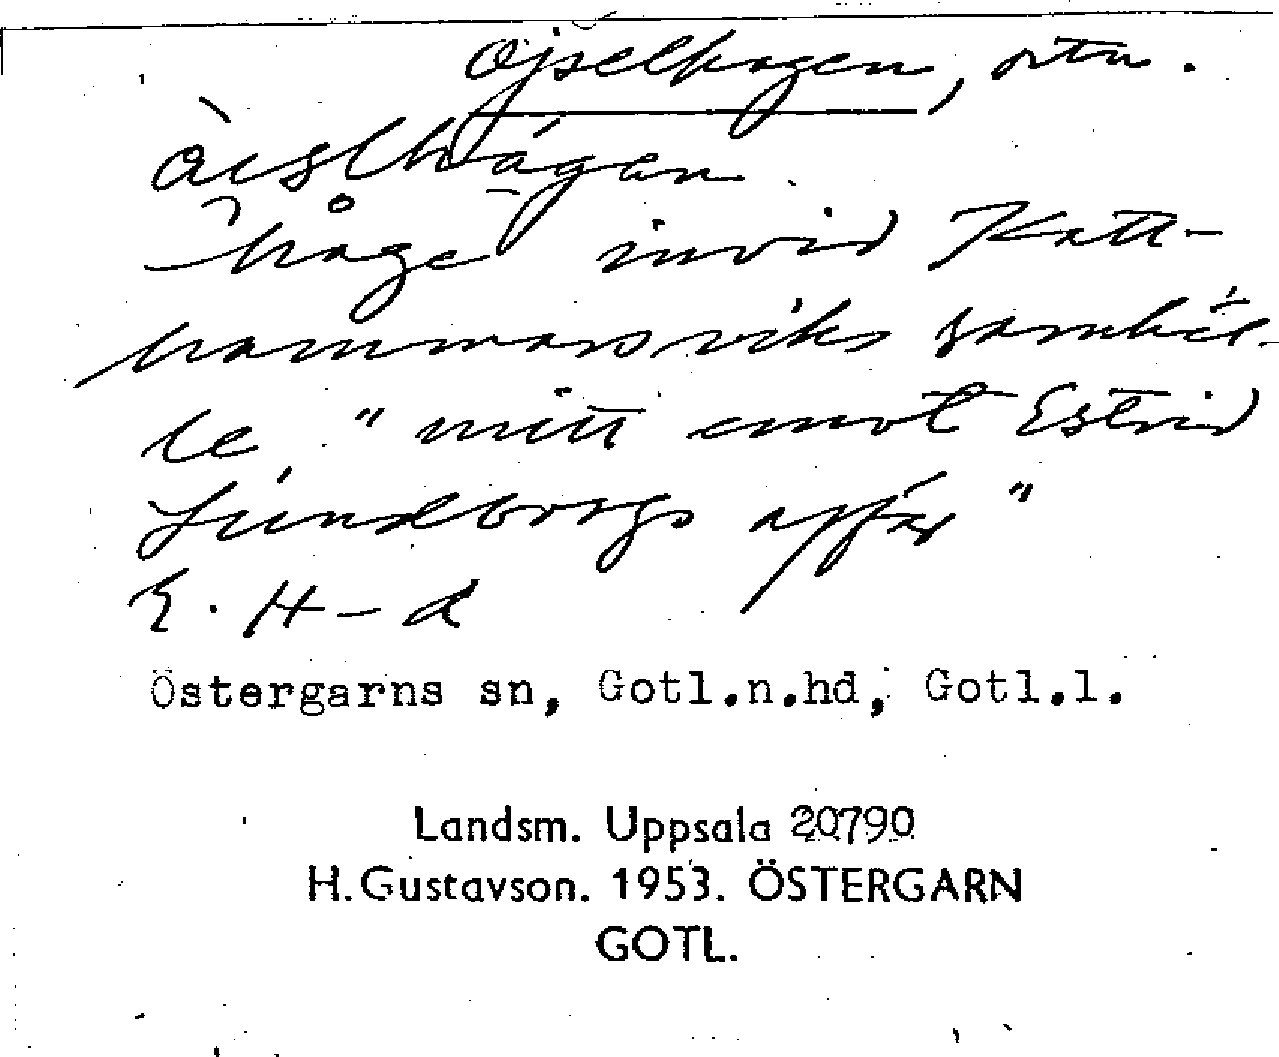 Ojselhagen, ortn.
àislhágen.
håge invid Katt-
hammarsviks samhäl-
le "mitt emot Estrid
Lundborgs affär"
E. H-d
Östergarns sn, Gotl.n.hd, Gotl.l.
Landsm. Uppsala 20790
H. Gustavson. 1953. ÖSTERGARN
GOTL.